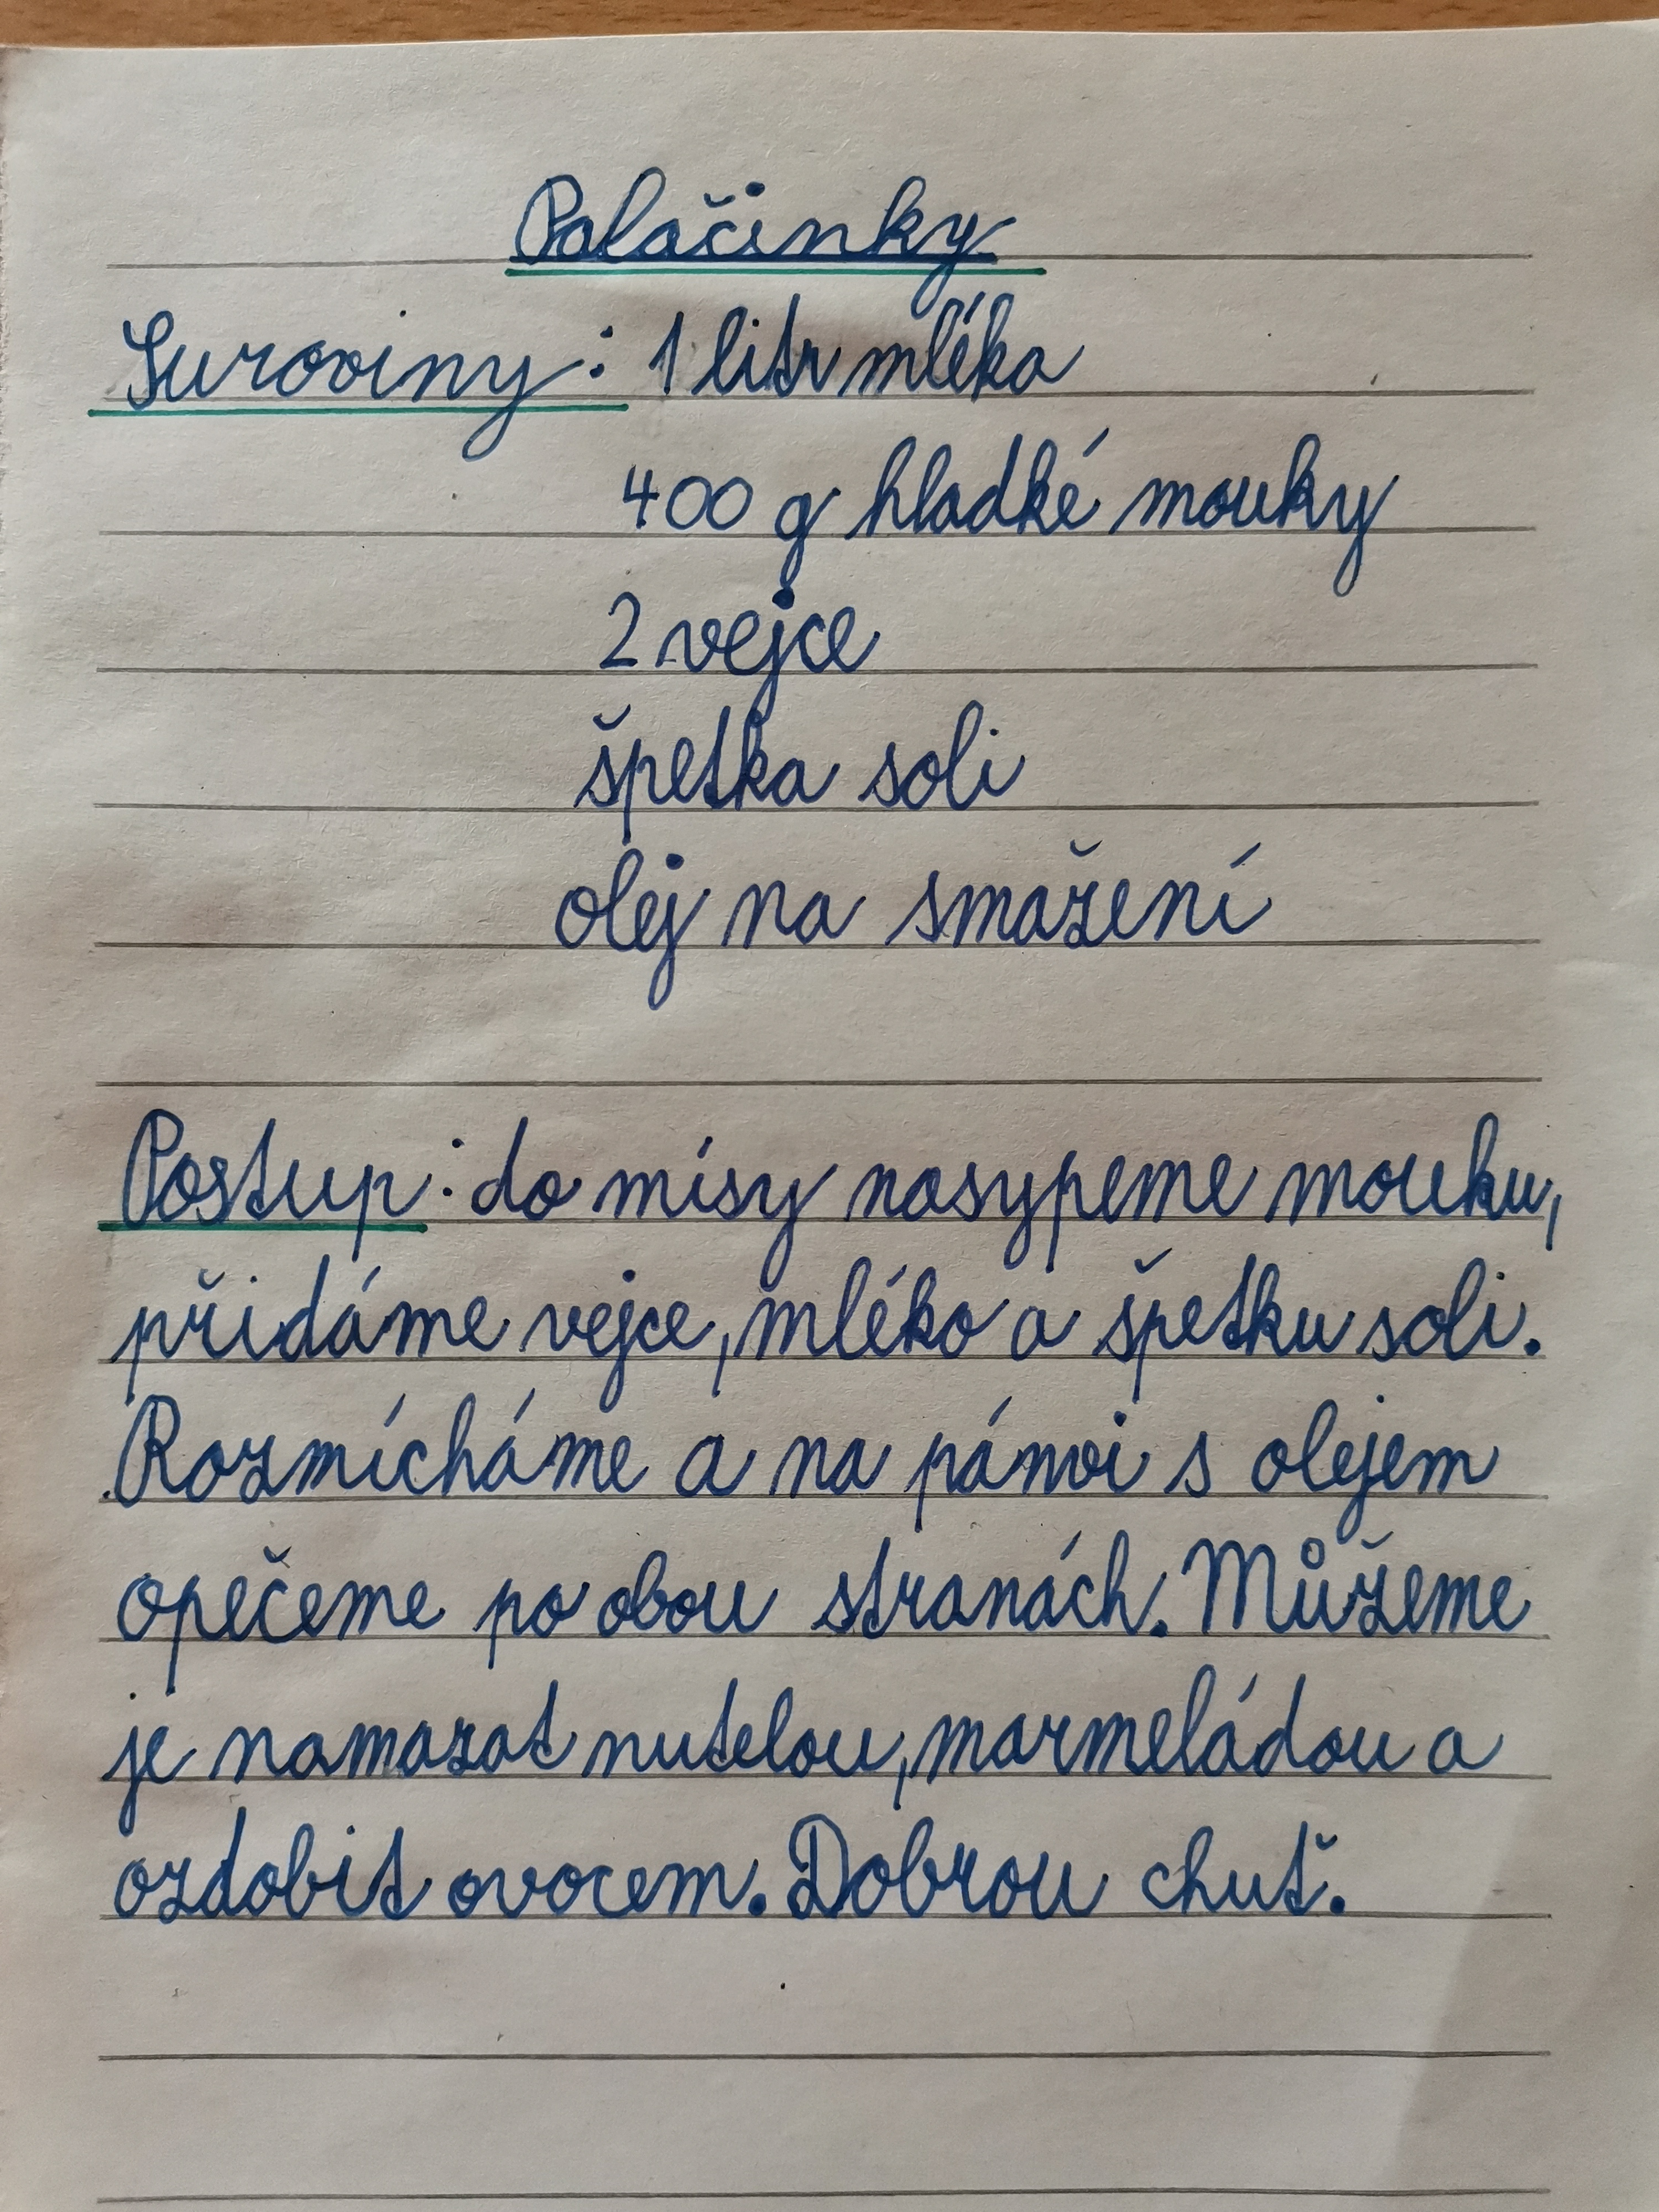 Palačinky
Suroviny: 1 litr mléka
400 g hladké mouky
2 vejce
špetka soli
olej na smažení
Postup: do mísy nasypeme mouku,
přidáme vejce, mléko a špetku soli.
Rozmícháme a na pánvi s olejem
opečeme po obou stranách. Můžeme
je namazat nutelou, marmeládou a
ozdobit ovocem. Dobrou chuť.